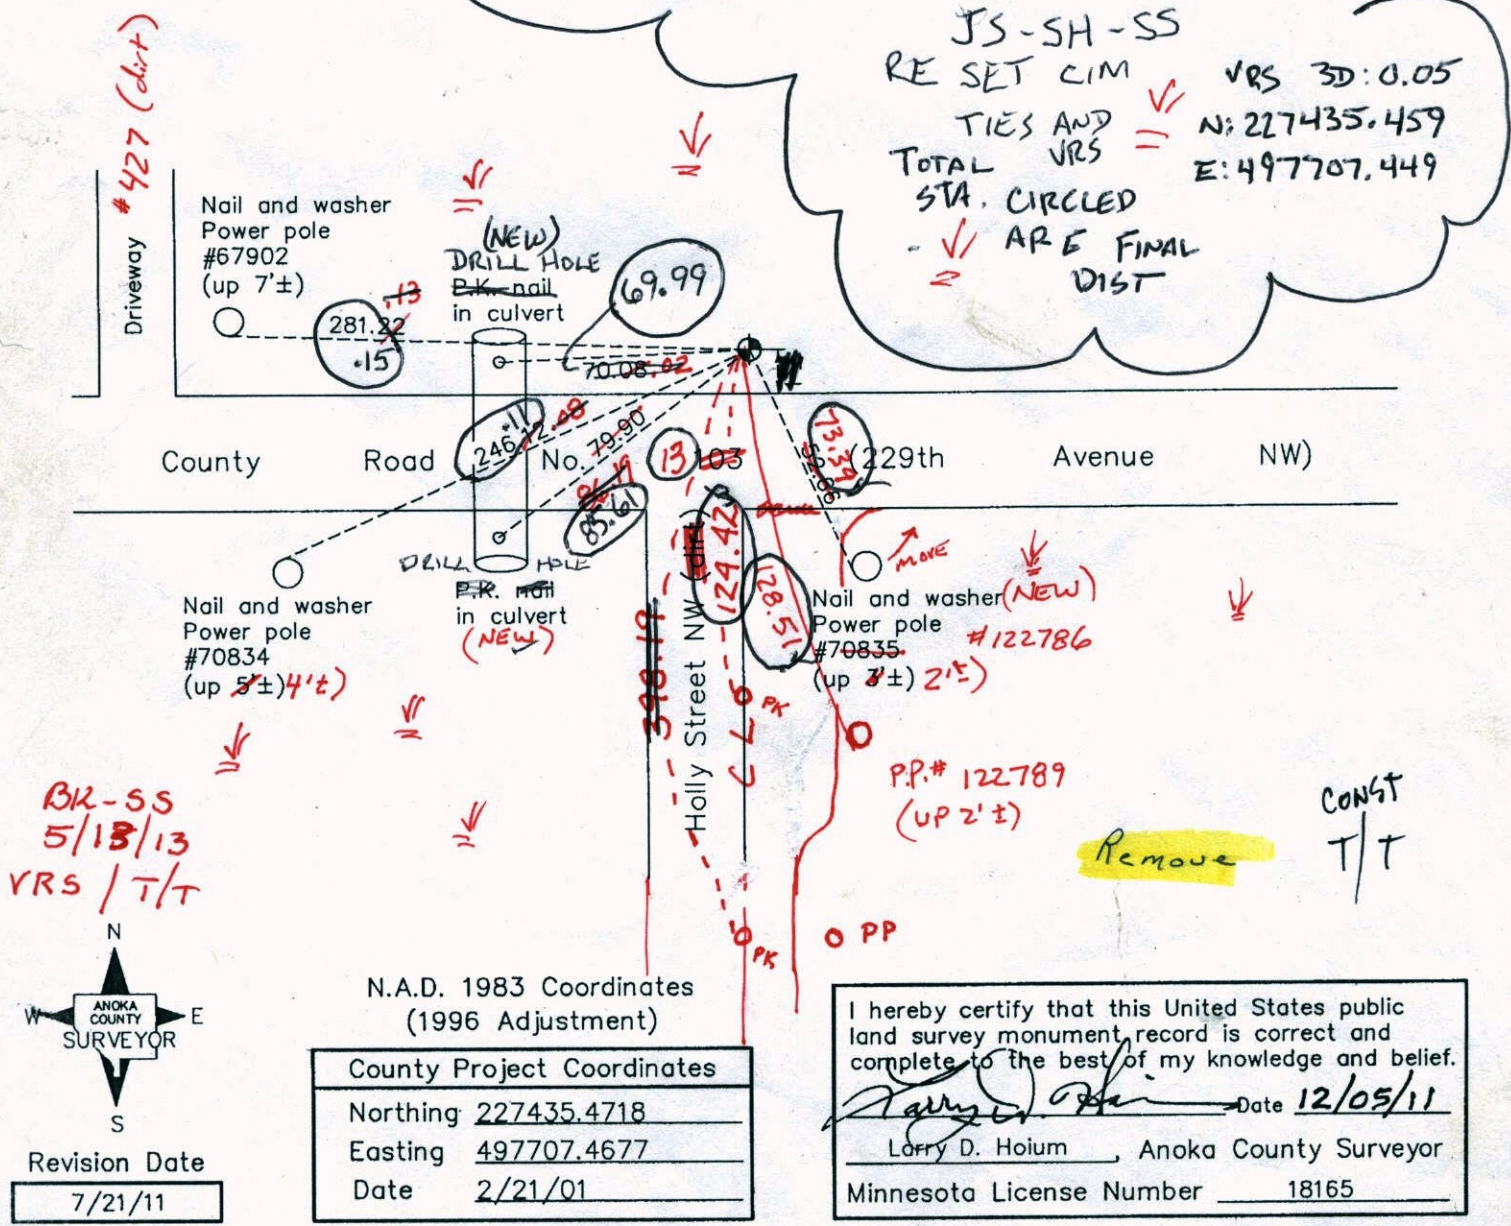 JS-SH-SS
RE SET CIM
TIES AND
VRS
TOTAL
STA. CIRCLED
ARE FINAL
DIST
VRS 3D: 0.05
N: 227435.459
E: 497707.449
#427 (dirt)
Driveway
Nail and washer
Power pole
#67902
(up 7'±)
(NEW)
DRILL HOLE
P.K. nail
in culvert
69.99
281.22
.13
.15
70.08 .02
246.12 .08
.11
79.90
86.19
85.61
73.39
County Road No. 103 13 (229th Avenue NW)
124.42
128.51
398.19
Holly Street NW (dirt)
MOVE
DRILL HOLE
P.K. nail
in culvert
(NEW)
Nail and washer
Power pole
#70834
(up 5'±) 4'±)
Nail and washer (NEW)
Power pole
#70835 #122786
(up 3'±) 2'±)
PK
P.P.# 122789
(UP 2' ±)
BK-SS
5/13/13
VRS / T/T
CONST
T/T
Remove
PK
PP
N
W
E
S
ANOKA
COUNTY
SURVEYOR
Revision Date
7/21/11
N.A.D. 1983 Coordinates
(1996 Adjustment)
County Project Coordinates
Northing 227435.4718
Easting 497707.4677
Date 2/21/01
I hereby certify that this United States public
land survey monument record is correct and
complete to the best of my knowledge and belief.
Date 12/05/11
Larry D. Hoium, Anoka County Surveyor
Minnesota License Number 18165